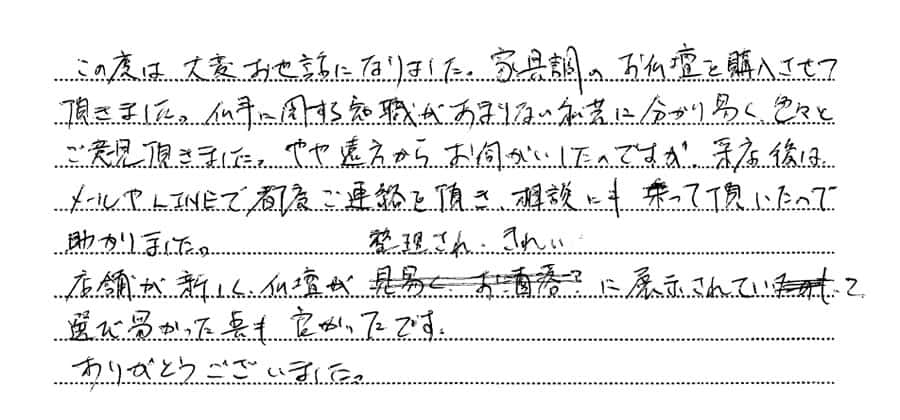 この度は大変お世話になりました。家具調のお仏壇を購入させて
頂きました。仏事に関する知識があまりない私共に分かり易く、色々と
ご意見頂きました。やや遠方からお伺がいしたのですが、来店後は
メールやLINEで都度ご連絡を頂き、相談にも乗って頂いたので
助かりました。
整理され、きれい
店舗が新しく、仏壇が見易く、お洒落?に展示されていて
選び易かった点も良かったです。
ありがとうございました。